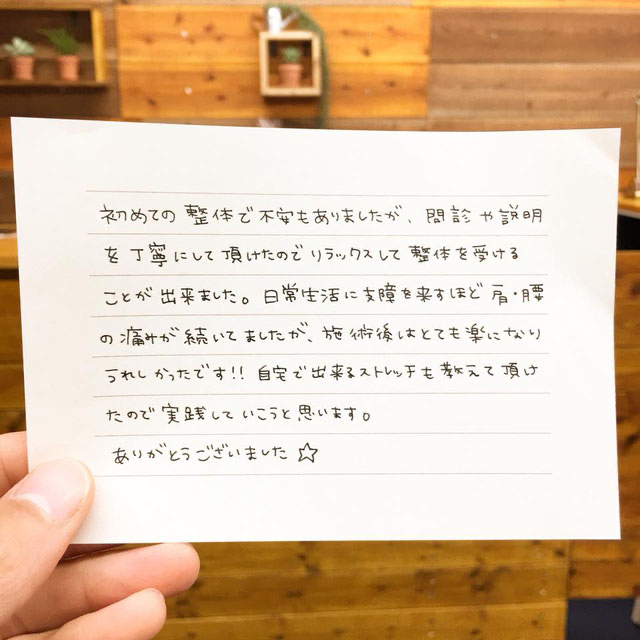 初めての整体で不安もありましたが、問診や説明
を丁寧にして頂けたのでリラックスして整体を受ける
ことが出来ました。日常生活に支障を来すほど肩・腰
の痛みが続いてましたが、施術後はとても楽になり
うれしかったです!! 自宅で出来るストレッチも教えて頂け
たので実践していこうと思います。
ありがとうございました☆